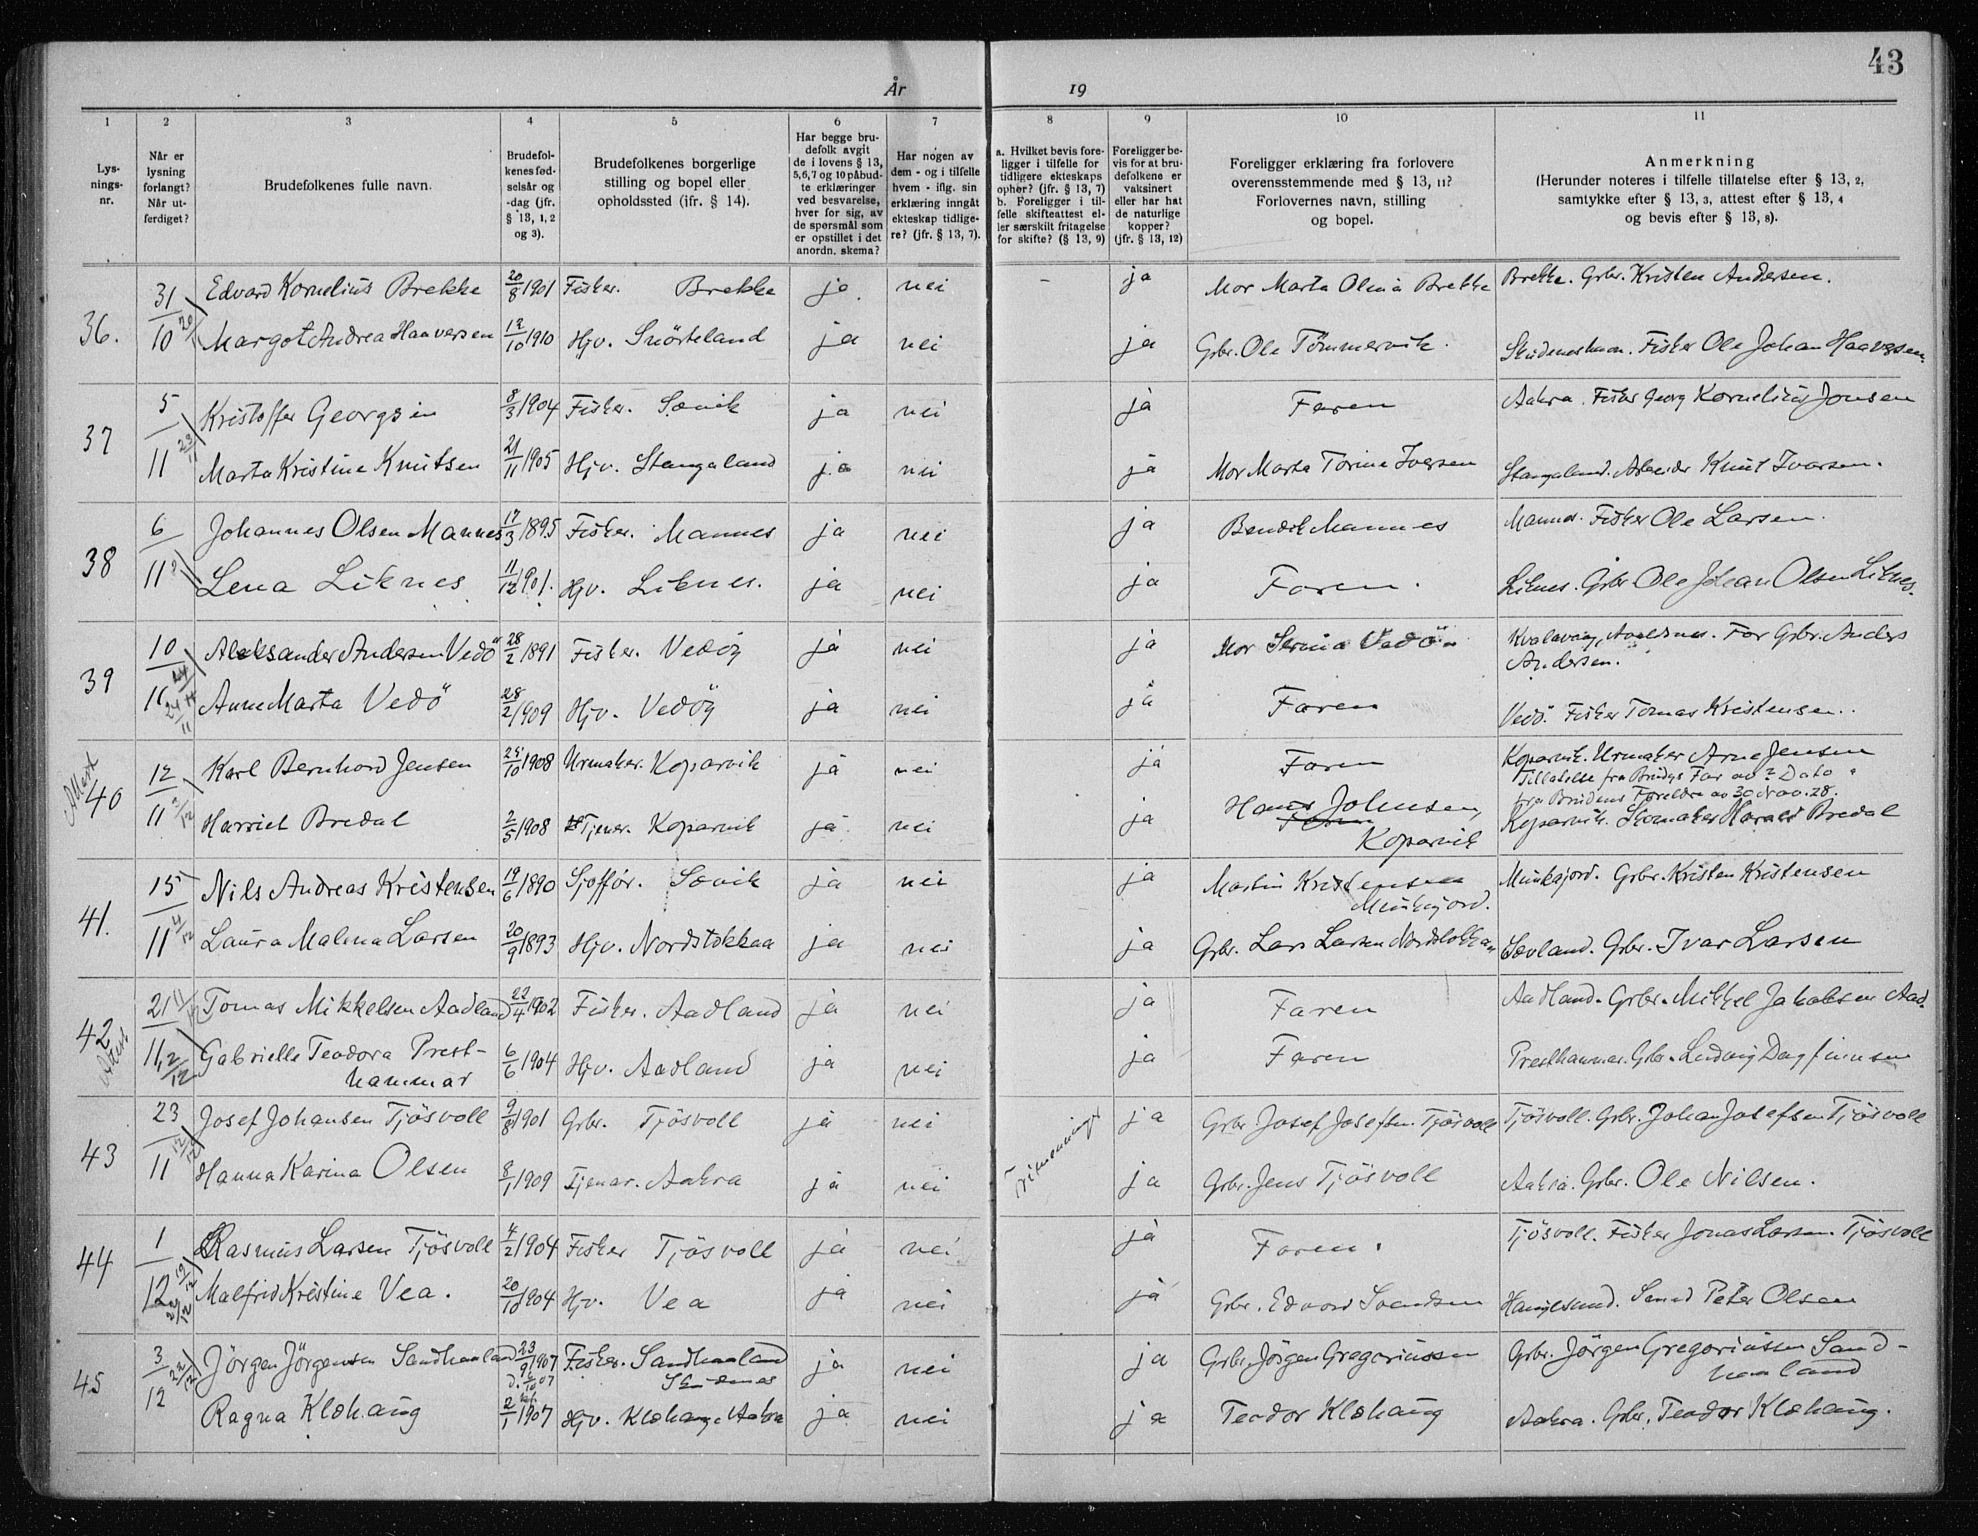 43
År
19
1 2 3 4 5 6 7 8 9 10 11
Lys-
nings-
nr.
Når er
lysning
forlangt?
Når ut-
ferdiget?
Brudefolkenes fulle navn.
Brudefol-
kenes fød-
selsår og
-dag (jfr.
§ 13, 1, 2
og 3).
Brudefolkenes borgerlige
stilling og bopel eller
opholdssted (jfr. § 14).
Har begge bru-
defolk avgit
de i lovens § 13,
5,6,7 og 10 påbud-
te erklæringer
ved besvarelse,
hver for sig, av
de spørsmål som
er opstillet i det
anordn. skema?
Har nogen av
dem - og i tilfelle
hvem - iflg. sin
erklæring inngåt
ekteskap tidlige-
re? (jfr. § 13, 7).
a. Hvilket bevis fore-
ligger i tilfelle for
tidligere ekteskaps
ophør? (jfr. § 13, 7)
b. Foreligger i til-
felle skifteattest el-
ler særskilt fritagelse
for skifte? (§ 13, 9)
Foreligger be-
vis for at bru-
defolkene er
vaksinert
eller har hat
de naturlige
kopper?
(jfr. § 13, 12)
Foreligger erklæring fra forlovere
overensstemmende med § 13, 11?
Forlovernes navn, stilling
og bopel.
Anmerkning
(Herunder noteres i tilfelle tillatelse efter § 13, 2,
samtykke efter § 13, 3, attest efter § 13, 4
og bevis efter § 13, 8).
36. 31/10 20/11 Edvard Kornelius Brekke 20/8 1901 Fisker. Brekke ja nei - ja Mor Marta Olina Brekke Brekke. Grbr. Kristen Andersen.
Margot Andrea Haaversen 12/10 1910 Hjv. Snörteland ja nei ja Grbr. Ole Tömmervik. Fisker Ole Johan Haaversen.
37 5/11 23/11 Kristoffer Georgsen 8/3 1904 Fisker. Sævik ja nei ja Faren Aakra. Fisker Georg Kornelius Jonsen
Marta Kristine Knutsen 21/11 1905 Hjv. Stangaland ja nei ja Mor Marta Torine Iversen Stangaland. Arbeider Knut Ivarsen.
38 6/11 Johannes Olsen Mannes 17/3 1895 Fisker. Mannes ja nei ja Bendik Mannes Mannes. Fisker Ole Larsen.
Lena Liknes 11/12 1901. Hjv. Liknes. ja nei ja Faren. Liknes. Grbr. Ole Johan Olsen Liknes.
39 10/11 24/11 Aleksander Andersen Vedö 28/2 1891 Fisker. Vedöy ja nei ja Mor Serina Vedö. Kvalavåg, Avaldsnes. Far Grbr. Anders
Andersen.
Anne Marta Vedö 28/2 1909 Hjv. Vedöy ja nei ja Faren Vedö. Fisker Tomas Kristensen.
Attest 40 12/11 3/12 Karl Bernhard Jensen 25/10 1908 Urmaker. Koparvik ja nei ja Faren Koparvik. Urmaker Arne Jensen
Tillatelse fra Brudgs Far av ? Dato
fra Brudens Foreldre av 30 Nov. 28.
Harriet Bredal 2/5 1908 Tjener. Koparvik ja nei ja Hans Johnsen, Koparvik Koparvik. Skomaker Harald Bredal
41. 15/11 4/12 Nils Andreas Kristensen 19/6 1890 Sjofför. Sævik ja nei ja Martin Kristensen
Munkejord. Munkejord. Grbr. Kristen Kristensen
Laura Malena Larsen 20/9 1893 Hjv. Nordstokkaa ja nei ja Grbr. Lars Larsen Nordstokkaa Sævland. Grbr. Ivar Larsen
42 Attest 21/11 12/12 Tomas Mikkelsen Aadland 22/4 1902 Fisker. Aadland ja nei ja Faren Aadland. Grbr. Mikkel Jakobsen Aad.
Gabrielle Teodora Prest-
hammar 6/6 1904 Hjv. Aadland ja nei ja Faren Presthammar. Grbr. Ludvig Dagfinnsen
43 23/11 12/12 Josef Johansen Tjösvoll 9/8 1901 Grbr. Tjösvoll ja nei ja Grbr. Josef Josefsen. Tjösvoll Tjösvoll. Grbr. Johan Josefsen Tjösvoll
Hanna Karina Olsen 8/1 1909 Tjenar. Aakra ja nei ja Grbr. Jens Tjösvoll Aakra. Grbr. Ole Nilsen.
44 1/12 19/12 Rasmus Larsen Tjösvoll 4/2 1904 Fisker Tjösvoll ja nei ja Faren. Tjösvoll. Fisker Jonas Larsen. Tjösvoll
Malfrid Kristine Vea. 20/10 1904 Hjv. Vea ja nei ja Grbr. Edvard Svendsen Haugesund. Peter Olsen
45 3/12 22/12 Jörgen Jörgensen Sandhaaland 23/9 1907 Fisker. Sandhaaland
Skudenes ja nei ja Grbr. Jörgen Gregoriussen Grbr. Jörgen Gregoriussen Sand-
haaland
Ragna Klohaug 2/1 1907 Hjv. Klohaug. Aakra ja nei ja Teodor Klohaug Aakra. Grbr. Teodor Klohaug.